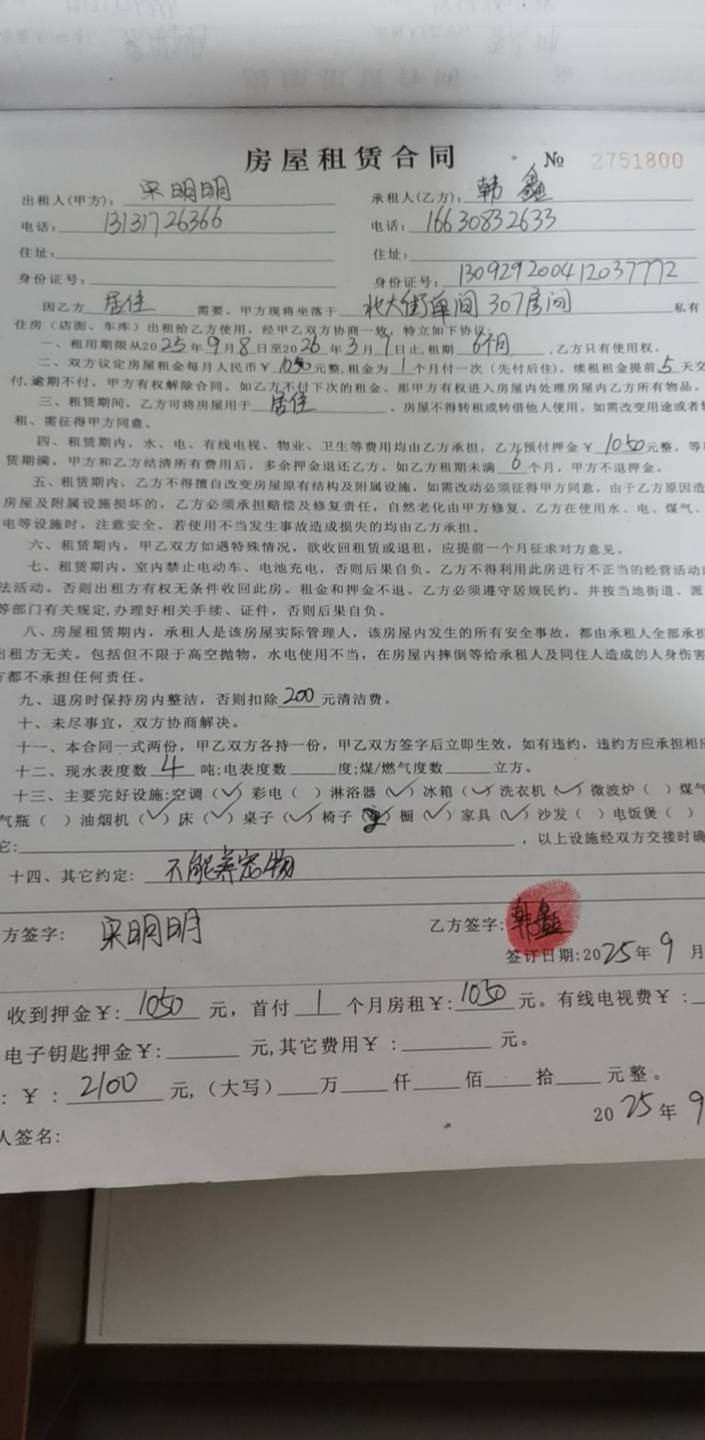 房屋租赁合同 № 2751800
出租人(甲方): 宋明明 承租人(乙方): 韩鑫
电话: 13131726366 电话: 16630832633
住址: 住址:
身份证号: 身份证号: 130929200412037772
因乙方 居住 需要，甲方现将坐落于 北大街单间307房间 私有
住房（店面、车库）出租给乙方使用，经甲乙双方协商一致，特立如下协议:
一、租用期限从2025年9月8日至2026年3月7日止,租期 6个月 ,乙方只有使用权。
二、双方议定房屋租金每月人民币￥1050元整,租金为1个月付一次（先付后住），续租租金提前5天交
付,逾期不付，甲方有权解除合同。如乙方不付下次的租金、那甲方有权进入房屋内处理房屋内乙方所有物品。
三、租赁期间，乙方可将房屋用于 居住 。房屋不得转租或转借他人使用。如需改变用途或者转
租、需征得甲方同意。
四、租赁期内，水、电、有线电视、物业、卫生等费用均由乙方承担，乙方预付押金￥1050元整，等
赁期满，甲方和乙方结清所有费用后，多余押金退还乙方。如乙方租期未满6个月，甲方不退押金。
五、租赁期内，乙方不得擅自改变房屋原有结构及附属设施，如需改动必须征得甲方同意，由于乙方原因造
房屋及附属设施损坏的，乙方必须承担赔偿及修复责任，自然老化由甲方修复。乙方在使用水、电、煤气、
电等设施时，注意安全。若使用不当发生事故造成损失的均由乙方承担。
六、租赁期内，甲乙双方如遇特殊情况，欲收回租赁或退租，应提前一个月征求对方意见。
七、租赁期内，室内禁止电动车、电池充电，否则后果自负。乙方不得利用此房进行不正当的经营活动
法活动。否则出租方有权无条件收回此房。租金和押金不退。乙方必须遵守居规民约。并按当地街道、派
等部门有关规定,办理好相关手续、证件，否则后果自负。
八、房屋租赁期内，承租人是该房屋实际管理人，该房屋内发生的所有安全事故，都由承租人全部承担
出租方无关。包括但不限于高空抛物，水电使用不当，在房屋内摔倒等给承租人及同住人造成的人身伤害
方都不承担任何责任。
九、退房时保持房内整洁，否则扣除200元清洁费。
十、未尽事宜，双方协商解决。
十一、本合同一式两份，甲乙双方各持一份，甲乙双方签字后立即生效，如有违约，违约方应承担相应
十二、现水表度数 4 吨;电表度数 度;煤/燃气度数 立方。
十三、主要完好设施:空调（✓）彩电（ ）淋浴器（✓）冰箱（✓）洗衣机（✓）微波炉（ ）煤气
气瓶（ ）油烟机（✓）床（✓）桌子（✓）椅子（ ）橱（✓）家具（✓）沙发（ ）电饭煲（ ）
它: ，以上设施经双方交接时确
十四、其它约定: 不能养宠物
方签字: 宋明明 乙方签字: 韩鑫
签订日期:2025年9月
收到押金￥:1050元，首付1个月房租￥:1050元。有线电视费￥:
电子钥匙押金￥: 元,其它费用￥: 元。
:￥:2100元,（大写） 万 仟 佰 拾 元整。
2025年9
人签名: